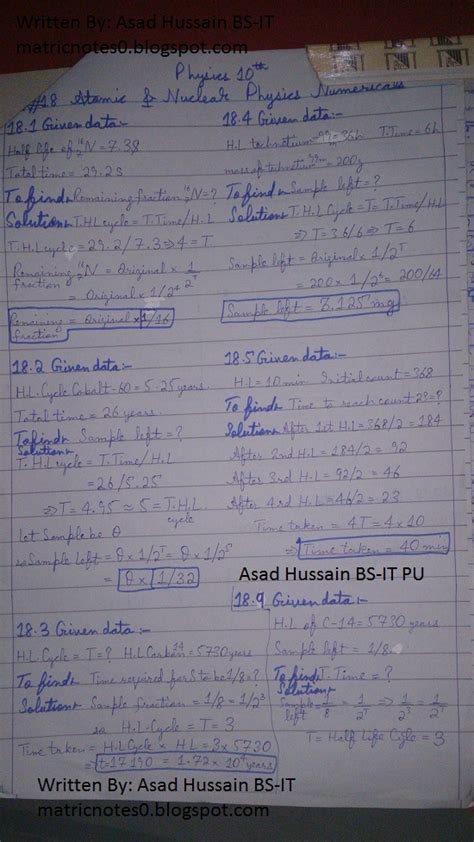 Written By: Asad Hussain BS-IT
matricnotes0.blogspot.com
Physics 10th
#18 Atamic & Nuclear Physics Numericals
18.1 Given data:-
Half life of N = 7.3s
Total time = 29.2s
To find: Remaining fraction N = ?
Solution: T.H.L cycle = T.Time/H.L
T.H.L cycle = 29.2/7.3 => 4 = T
Remaining fraction N = Original x 1/2^T
= Original x 1/2^4
Remaining fraction = Original x 1/16
18.2 Given data:-
H.L. Cycle Cobalt-60 = 5.25 years.
Total time = 26 years.
To find: Sample left = ?
T.H.L cycle = T.Time/H.L
= 26/5.25
=> T = 4.95 ≈ 5 = T.H.L cycle
let Sample be θ
Sample left = θ x 1/2^T = θ x 1/2^5
= θ x 1/32
18.3 Given data:-
H.L. Cycle = T = ? H.L Carbon 14 = 5730 years
To find: Time required for S to be 1/8 = ?
Solution: Sample fraction = 1/8 = 1/2^3
so H.L. Cycle = T = 3
Time taken = H.L Cycle x H.L = 3 x 5730
=> t = 17190 = 1.72 x 10^4 years
18.4 Given data:-
H.L technetium-99 = 36h T.Time = 6h
mass of technetium = 200g
To find: Sample left = ?
Solution: T.H.L Cycle = T = T.Time/H.L
=> T = 36/6 => T = 6
Sample left = Original x 1/2^T
= 200 x 1/2^6 = 200/64
Sample left = 3.125 mg
18.5 Given data:-
H.L = 10 min Initial count = 368
To find: Time to reach count 23 = ?
Solution: After 1st H.L = 368/2 = 184
After 2nd H.L = 184/2 = 92
After 3rd H.L = 92/2 = 46
After 4rd H.L = 46/2 = 23
Time taken = 4T = 4 x 10
=> Time taken = 40 min
Asad Hussain BS-IT PU
18.9 Given data:-
H.L of C-14 = 5730 years
Sample left = 1/8
To find: T.Time = ?
Solution:
Sample left = 1/8 = 1/2^T => 1/2^3 = 1/2^T
T = Half Life Cycle = 3
Written By: Asad Hussain BS-IT
matricnotes0.blogspot.com